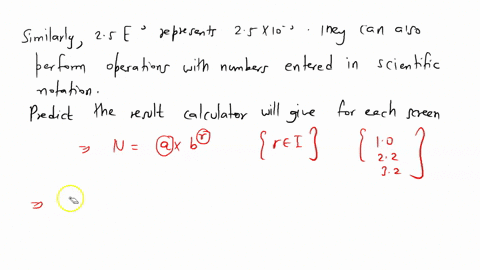 Similarly, 2.5 E⁻³ represents 2.5 × 10⁻³. They can also
perform operations with numbers entered in scientific
notation.
Predict the result calculator will give for each screen
⇒ N = a × bʳ {r ∈ I} {1.0
2.2
3.2}
⇒